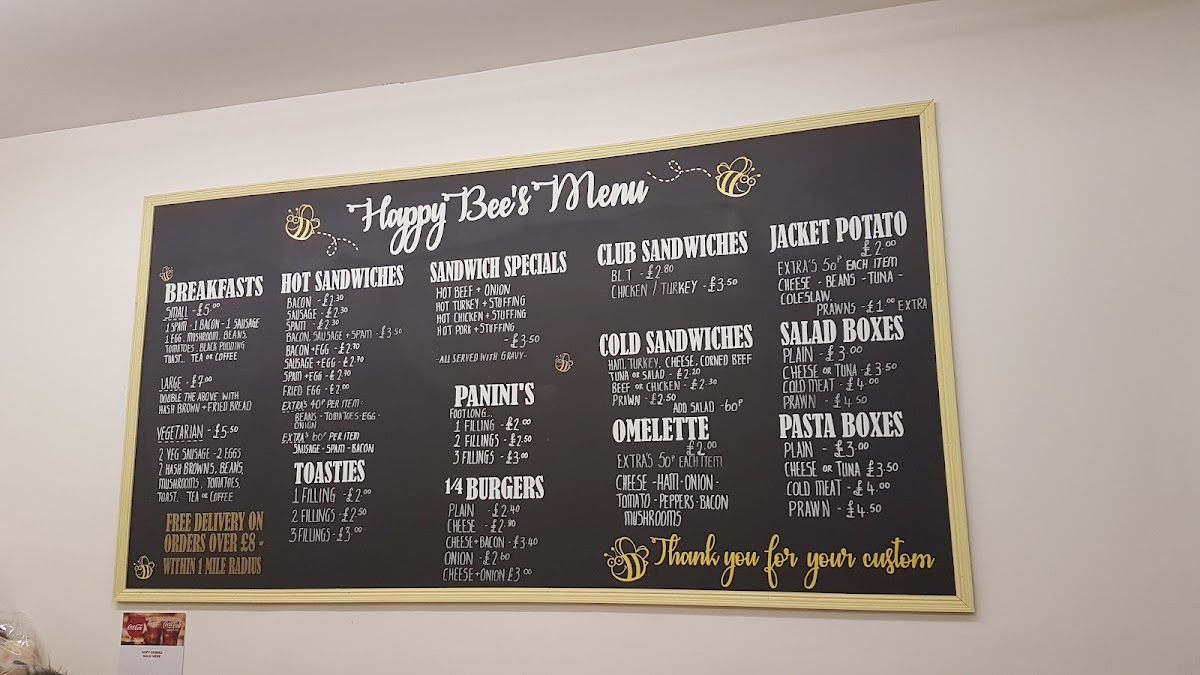 Happy Bee's Menu
BREAKFASTS
SMALL - £5.00
1 SPAM - 1 BACON - 1 SAUSAGE
1 EGG. MUSHROOM. BEANS,
TOMATOES. BLACK PUDDING
TOAST. TEA OR COFFEE
LARGE - £7.00
DOUBLE THE ABOVE WITH
HASH BROWN + FRIED BREAD
VEGETARIAN - £5.50
2 VEG SAUSAGE - 2 EGGS
2 HASH BROWNS. BEANS,
MUSHROOMS. TOMATOES,
TOAST. TEA OR COFFEE
FREE DELIVERY ON
ORDERS OVER £8 -
WITHIN 1 MILE RADIUS
HOT SANDWICHES
BACON - £2.30
SAUSAGE - £2.30
SPAM - £2.30
BACON, SAUSAGE + SPAM - £3.50
BACON + EGG - £2.70
SAUSAGE + EGG - £2.70
SPAM + EGG - £2.70
FRIED EGG - £2.00
EXTRA'S 40P PER ITEM:
BEANS - TOMATOES - EGG -
ONION
EXTRA'S 60P PER ITEM
SAUSAGE - SPAM - BACON
TOASTIES
1 FILLING - £2.00
2 FILLINGS - £2.50
3 FILLINGS - £3.00
SANDWICH SPECIALS
HOT BEEF + ONION
HOT TURKEY + STUFFING
HOT CHICKEN + STUFFING
HOT PORK + STUFFING
- £3.50
- ALL SERVED WITH GRAVY -
PANINI'S
FOOTLONG...
1 FILLING - £2.00
2 FILLINGS - £2.50
3 FILLINGS - £3.00
1/4 BURGERS
PLAIN - £2.40
CHEESE - £2.80
CHEESE + BACON - £3.40
ONION - £2.60
CHEESE + ONION £3.00
CLUB SANDWICHES
BLT - £2.80
CHICKEN / TURKEY - £3.50
COLD SANDWICHES
HAM, TURKEY, CHEESE, CORNED BEEF
TUNA OR SALAD - £2.20
BEEF OR CHICKEN - £2.30
PRAWN - £2.50
ADD SALAD - 60P
OMELETTE
£2.00
EXTRA'S 50P EACH ITEM
CHEESE - HAM - ONION -
TOMATO - PEPPERS - BACON
MUSHROOMS
JACKET POTATO
£2.00
EXTRA'S 50P EACH ITEM
CHEESE - BEANS - TUNA -
COLESLAW.
PRAWNS - £1.00 EXTRA
SALAD BOXES
PLAIN - £3.00
CHEESE OR TUNA - £3.50
COLD MEAT - £4.00
PRAWN - £4.50
PASTA BOXES
PLAIN - £3.00
CHEESE OR TUNA £3.50
COLD MEAT - £4.00
PRAWN - £4.50
Thank you for your custom
Coca-Cola
SOFT DRINKS
SOLD HERE